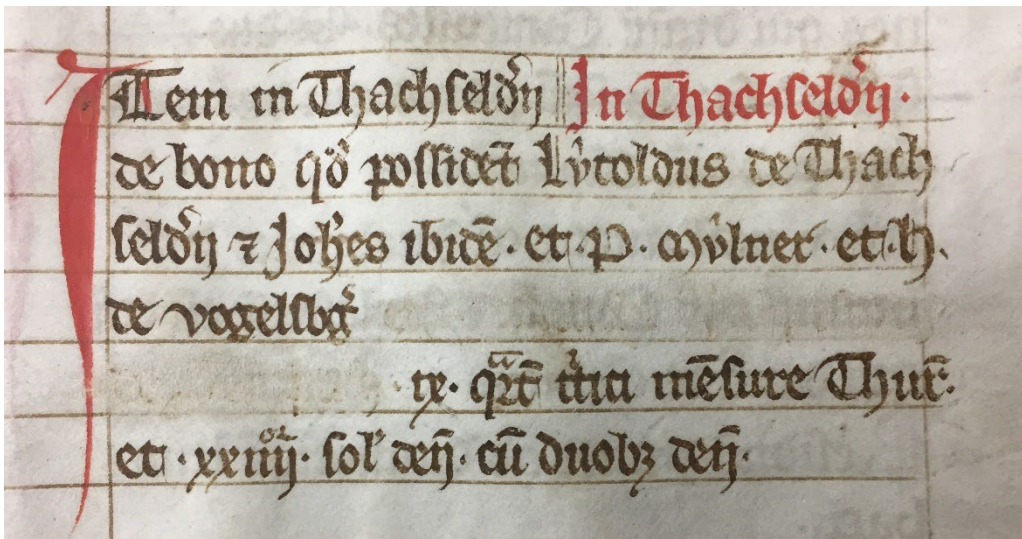 Item in Thachseldn̄ In Thachseldn̄·
de bono qd̄ possidet Lv̊toldus de Thach
seldn̄ ⁊ Joh̄es ibidē · et · P · Mv̊lner · et · h̄ ·
de vogelsbḡ
· ix · qᵃrt̄ tͥtici mēsure Thur̄ ·
et · xxiiij · sol' den̄ · cū duobꝫ den̄ ·